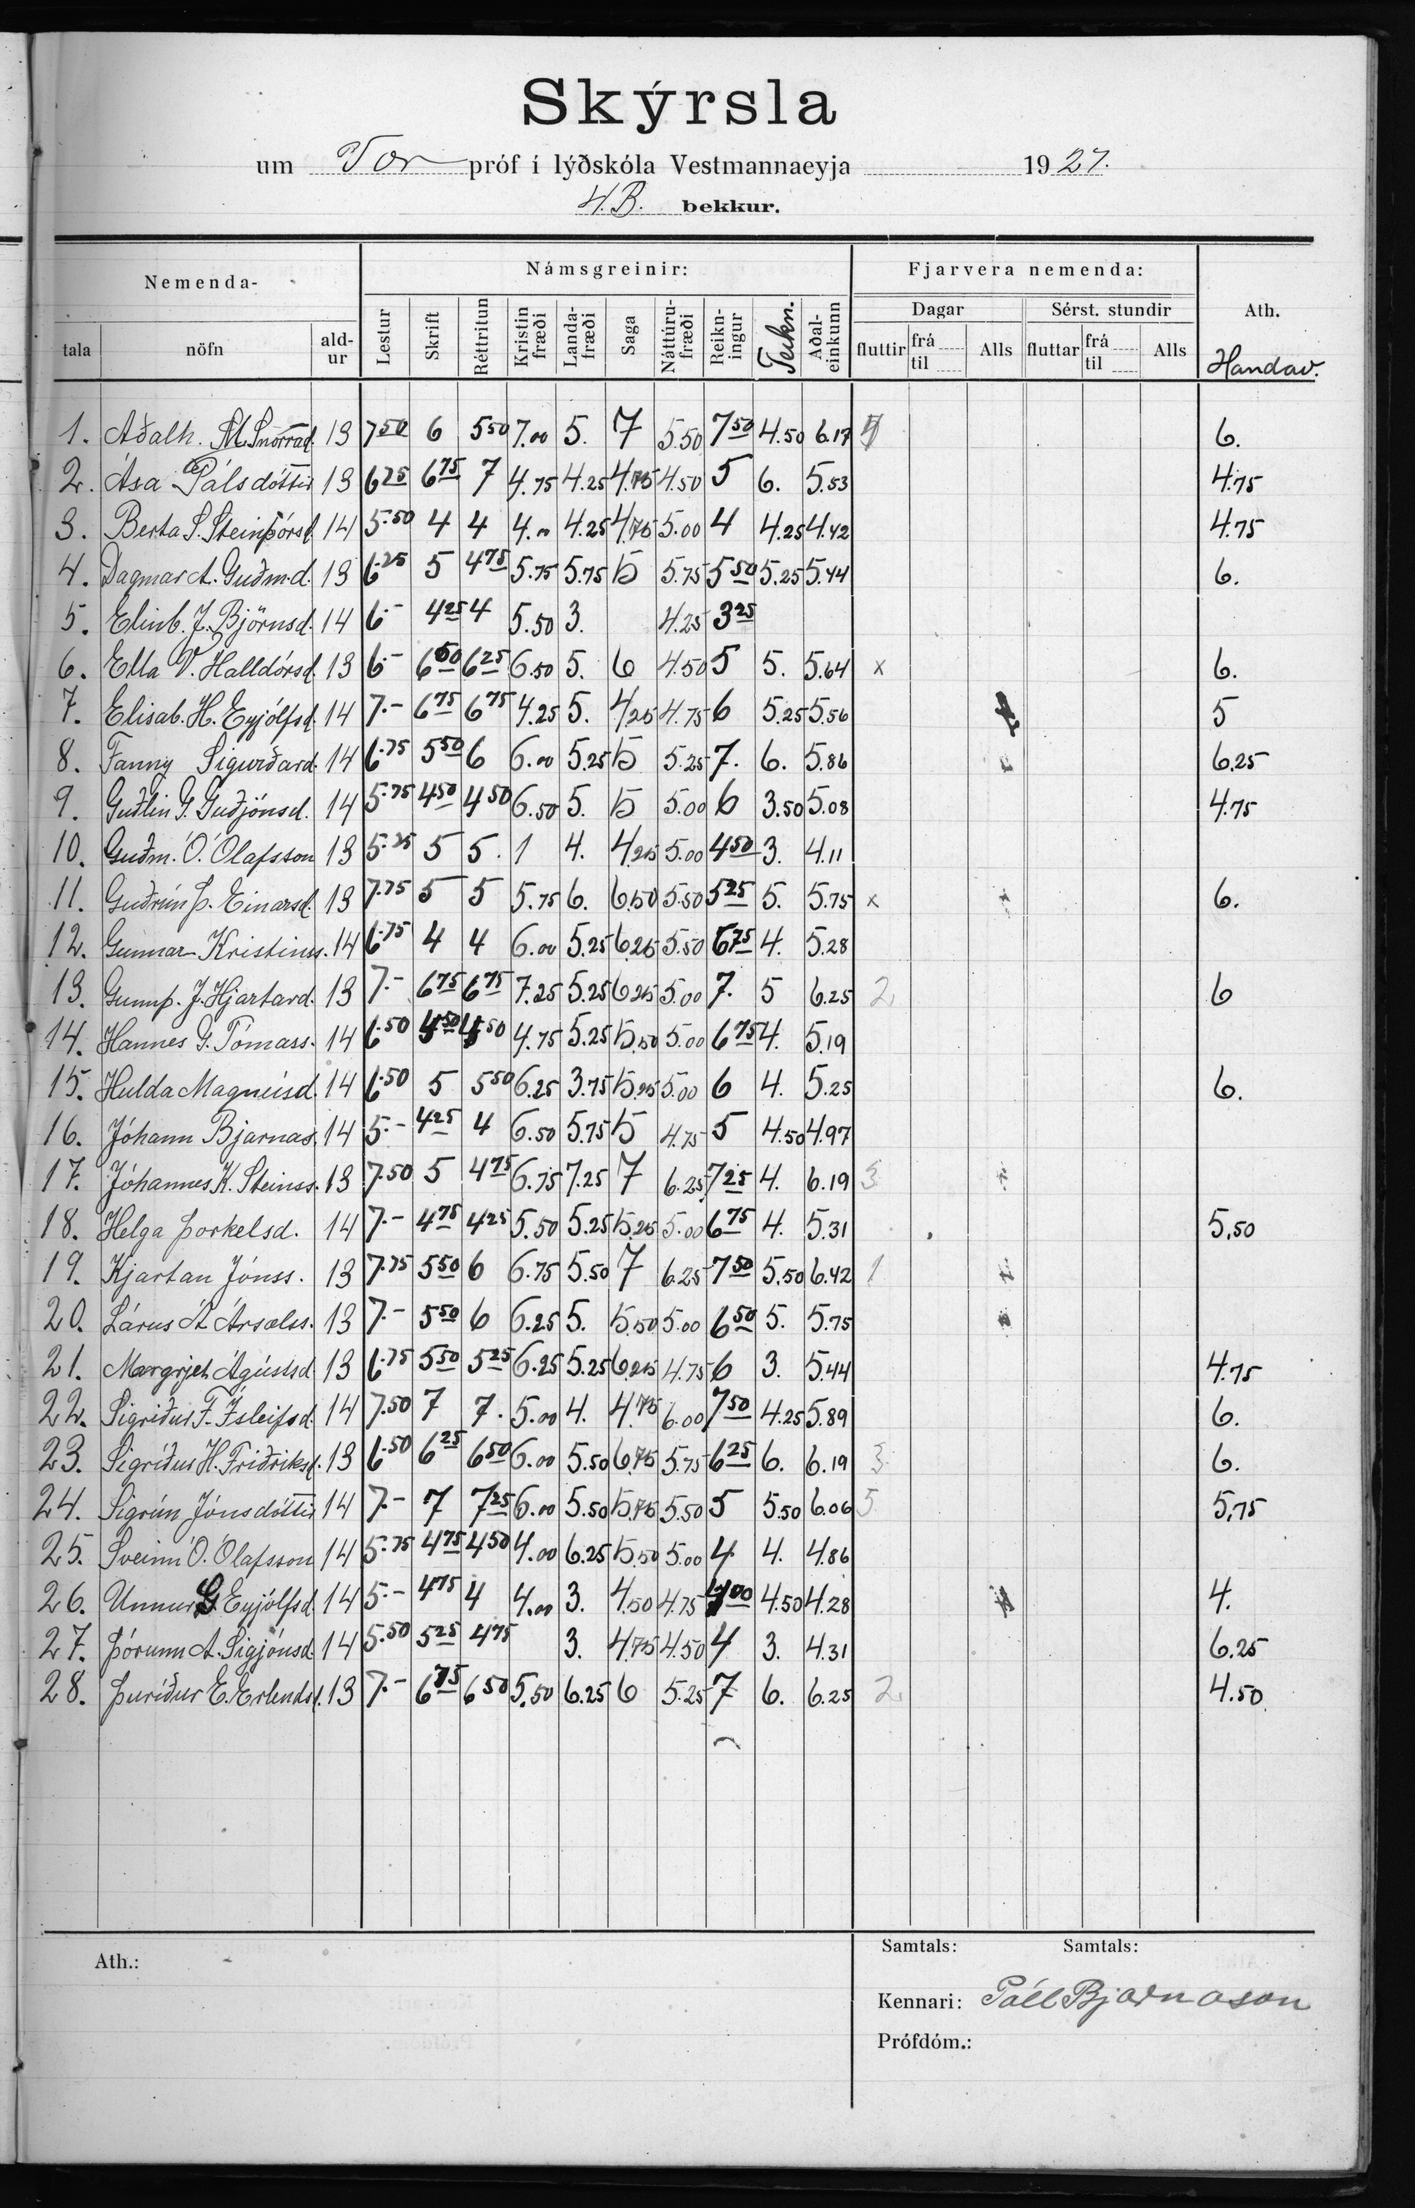 Skýrsla
um Vor próf í lýðskóla Vestmannaeyja 1927.
4.B. bekkur.
Nemenda- Námsgreinir: Fjarvera nemenda: Ath.
Dagar Sérst. stundir
tala nöfn ald-ur Lestur Skrift Réttritun Kristinfræði Landa-fræði Saga Náttúru-fræði Reikn-ingur Teikn. Aðal-einkunn fluttir frá til Alls fluttar frá til Alls Handav.
1. Aðalh. M. Snorrad. 13 7.50 6 5.50 7.00 5. 7 5.50 7.50 4.50 6.17 6.
2. Ása Pálsdóttir 13 6.25 6.75 7 4.75 4.25 4.75 4.50 5 6. 5.53 4.75
3. Berta S. Steinþórsd. 14 5.50 4 4 4.00 4.25 4.75 5.00 4 4.25 4.42 4.75
4. Dagmar A. Guðm.d. 13 6.25 5 4.75 5.75 5.75 5 5.75 5.50 5.25 5.44 6.
5. Elinb. J. Björnsd. 14 6.- 4.25 4 5.50 3. 4.25 3.25
6. Ella V. Halldórsd. 13 6.- 6.50 6.25 6.50 5. 6 4.50 5 5. 5.64 x 6.
7. Elisab. H. Eyjólfsd. 14 7.- 6.75 6.75 4.25 5. 4.25 4.75 6 5.25 5.56 5
8. Fanny Sigurðard. 14 6.75 5.50 6 6.00 5.25 5 5.25 7. 6. 5.86 6.25
9. Guðlín G. Guðjónsd. 14 5.75 4.50 4.50 6.50 5. 5 5.00 6 3.50 5.08 4.75
10. Guðm. Ó. Ólafsson 13 5.25 5 5. 1 4. 4.25 5.00 4.50 3. 4.11
11. Guðrún Þ. Einarsd. 13 7.75 5 5 5.75 6. 6.50 5.50 5.25 5. 5.75 x 6.
12. Gunnar Kristinss. 14 6.75 4 4 6.00 5.25 6.25 5.50 6.75 4. 5.28
13. Gunnþ. J. Hjartard. 13 7.- 6.75 6.75 7.25 5.25 6.25 5.00 7. 5 6.25 2 6
14. Hannes G. Tómass. 14 6.50 4.50 4.50 4.75 5.25 5.50 5.00 6.75 4. 5.19
15. Hulda Magnúsd. 14 6.50 5 5.50 6.25 3.75 5.25 5.00 6 4. 5.25 6.
16. Jóhann Bjarnas. 14 5.- 4.25 4 6.50 5.75 5 4.75 5 4.50 4.97
17. Jóhannes K. Steinss. 13 7.50 5 4.75 6.75 7.25 7 6.25 7.25 4. 6.19 3
18. Helga Þorkelsd. 14 7.- 4.75 4.25 5.50 5.25 5.25 5.00 6.75 4. 5.31 5.50
19. Kjartan Jónss. 13 7.75 5.50 6 6.75 5.50 7 6.25 7.50 5.50 6.42 1
20. Lárus Á Ársælss. 13 7.- 5.50 6 6.25 5. 5.50 5.00 6.50 5. 5.75
21. Margrjet Ágústsd 13 6.75 5.50 5.25 6.25 5.25 6.25 4.75 6 3. 5.44 4.75
22. Sigríður F. Ísleifsd. 14 7.50 7 7. 5.00 4. 4.75 6.00 7.50 4.25 5.89 6.
23. Sigríður H. Friðriksd. 13 6.50 6.25 6.50 6.00 5.50 6.75 5.75 6.25 6. 6.19 3 6.
24. Sigrún Jónsdóttir 14 7.- 7 7.25 6.00 5.50 5.75 5.50 5 5.50 6.06 5 5.75
25. Sveinn Ó. Ólafsson 14 5.75 4.75 4.50 4.00 6.25 5.50 5.00 4 4. 4.86
26. Unnur G. Eyjólfsd. 14 5.- 4.75 4 4.00 3. 4.50 4.75 4.00 4.50 4.28 4.
27. Þórunn A. Sigjónsd. 14 5.50 5.25 4.75 3. 4.75 4.50 4 3. 4.31 6.25
28. Þuríður E. Erlendsd. 13 7.- 6.75 6.50 5.50 6.25 6 5.25 7 6. 6.25 2 4.50
Ath.: Samtals: Samtals:
Kennari: Páll Bjarnason
Prófdóm.: